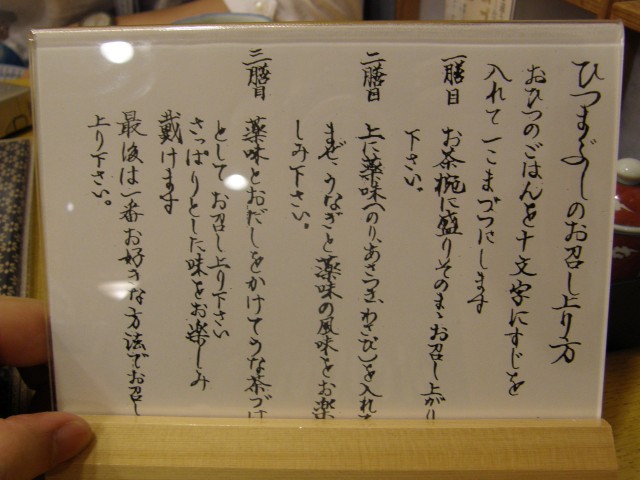 ひつまぶしのお召し上り方
おひつのごはんを十文字にすじを
入れて一こまづつにします
一膳目 お茶椀に盛りそのまゝお召し上がり
下さい。
二膳目 上に薬味(のり、あさつき、わさび)を入れ
まぜ、うなぎと薬味の風味をお楽
しみ下さい。
三膳目 薬味とおだしをかけてうな茶づけ
としてお召し上り下さい
さっぱりとした味をお楽しみ
戴けます
最後は一番お好きな方法でお召し
上り下さい。